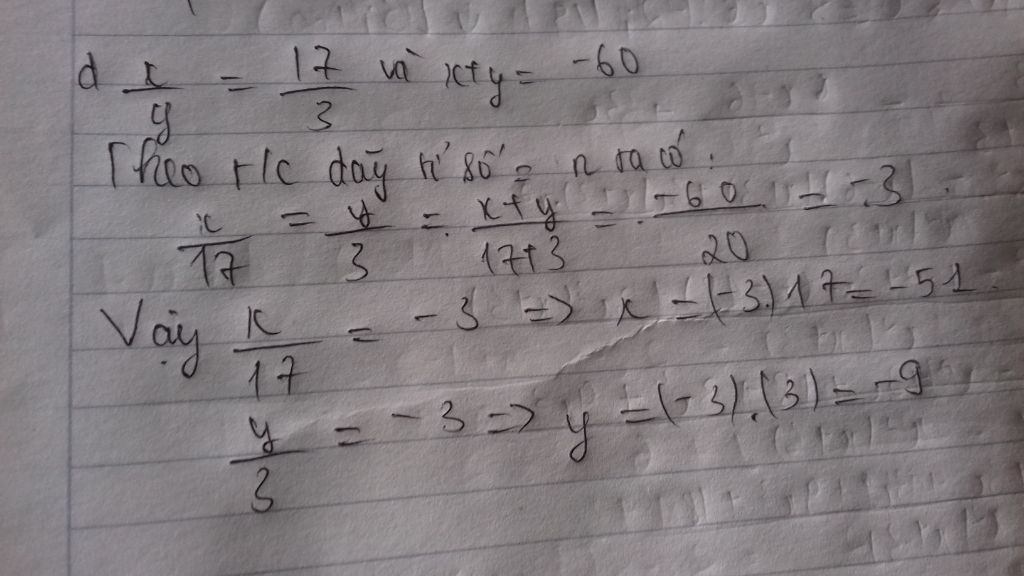 d x/y = 17/3 và x+y = -60
Theo t/c dãy tỉ số = n ta có.
x/17 = y/3 = x+y/17+3 = -60/20 = -3.
Vậy x/17 = -3 => x = (-3).17 = -51.
y/3 = -3 => y = (-3).(3) = -9